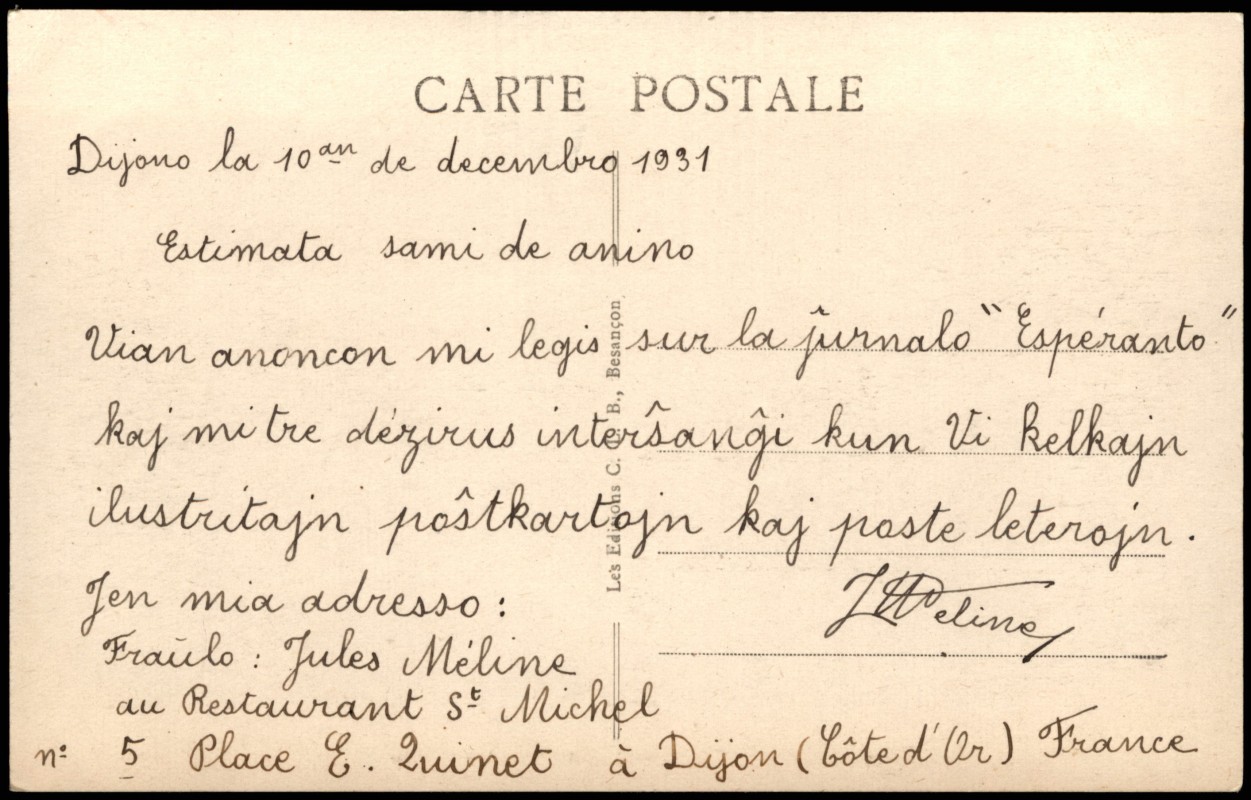 CARTE POSTALE
Dijono la 10an de decembro 1931
Estimata sami de anino
Vian anoncon mi legis sur la ĵurnalo "Espéranto"
kaj mi tre dézirus interŝanĝi kun Vi kelkajn
ilustritajn poŝtkartojn kaj poste leterojn.
Jen mia adresso :
JMeline
Fraŭlo : Jules Méline
au Restaurant St Michel
no 5 Place E. Quinet à Dijon (Côte d'Or) France
Les Editions C. B., Besançon